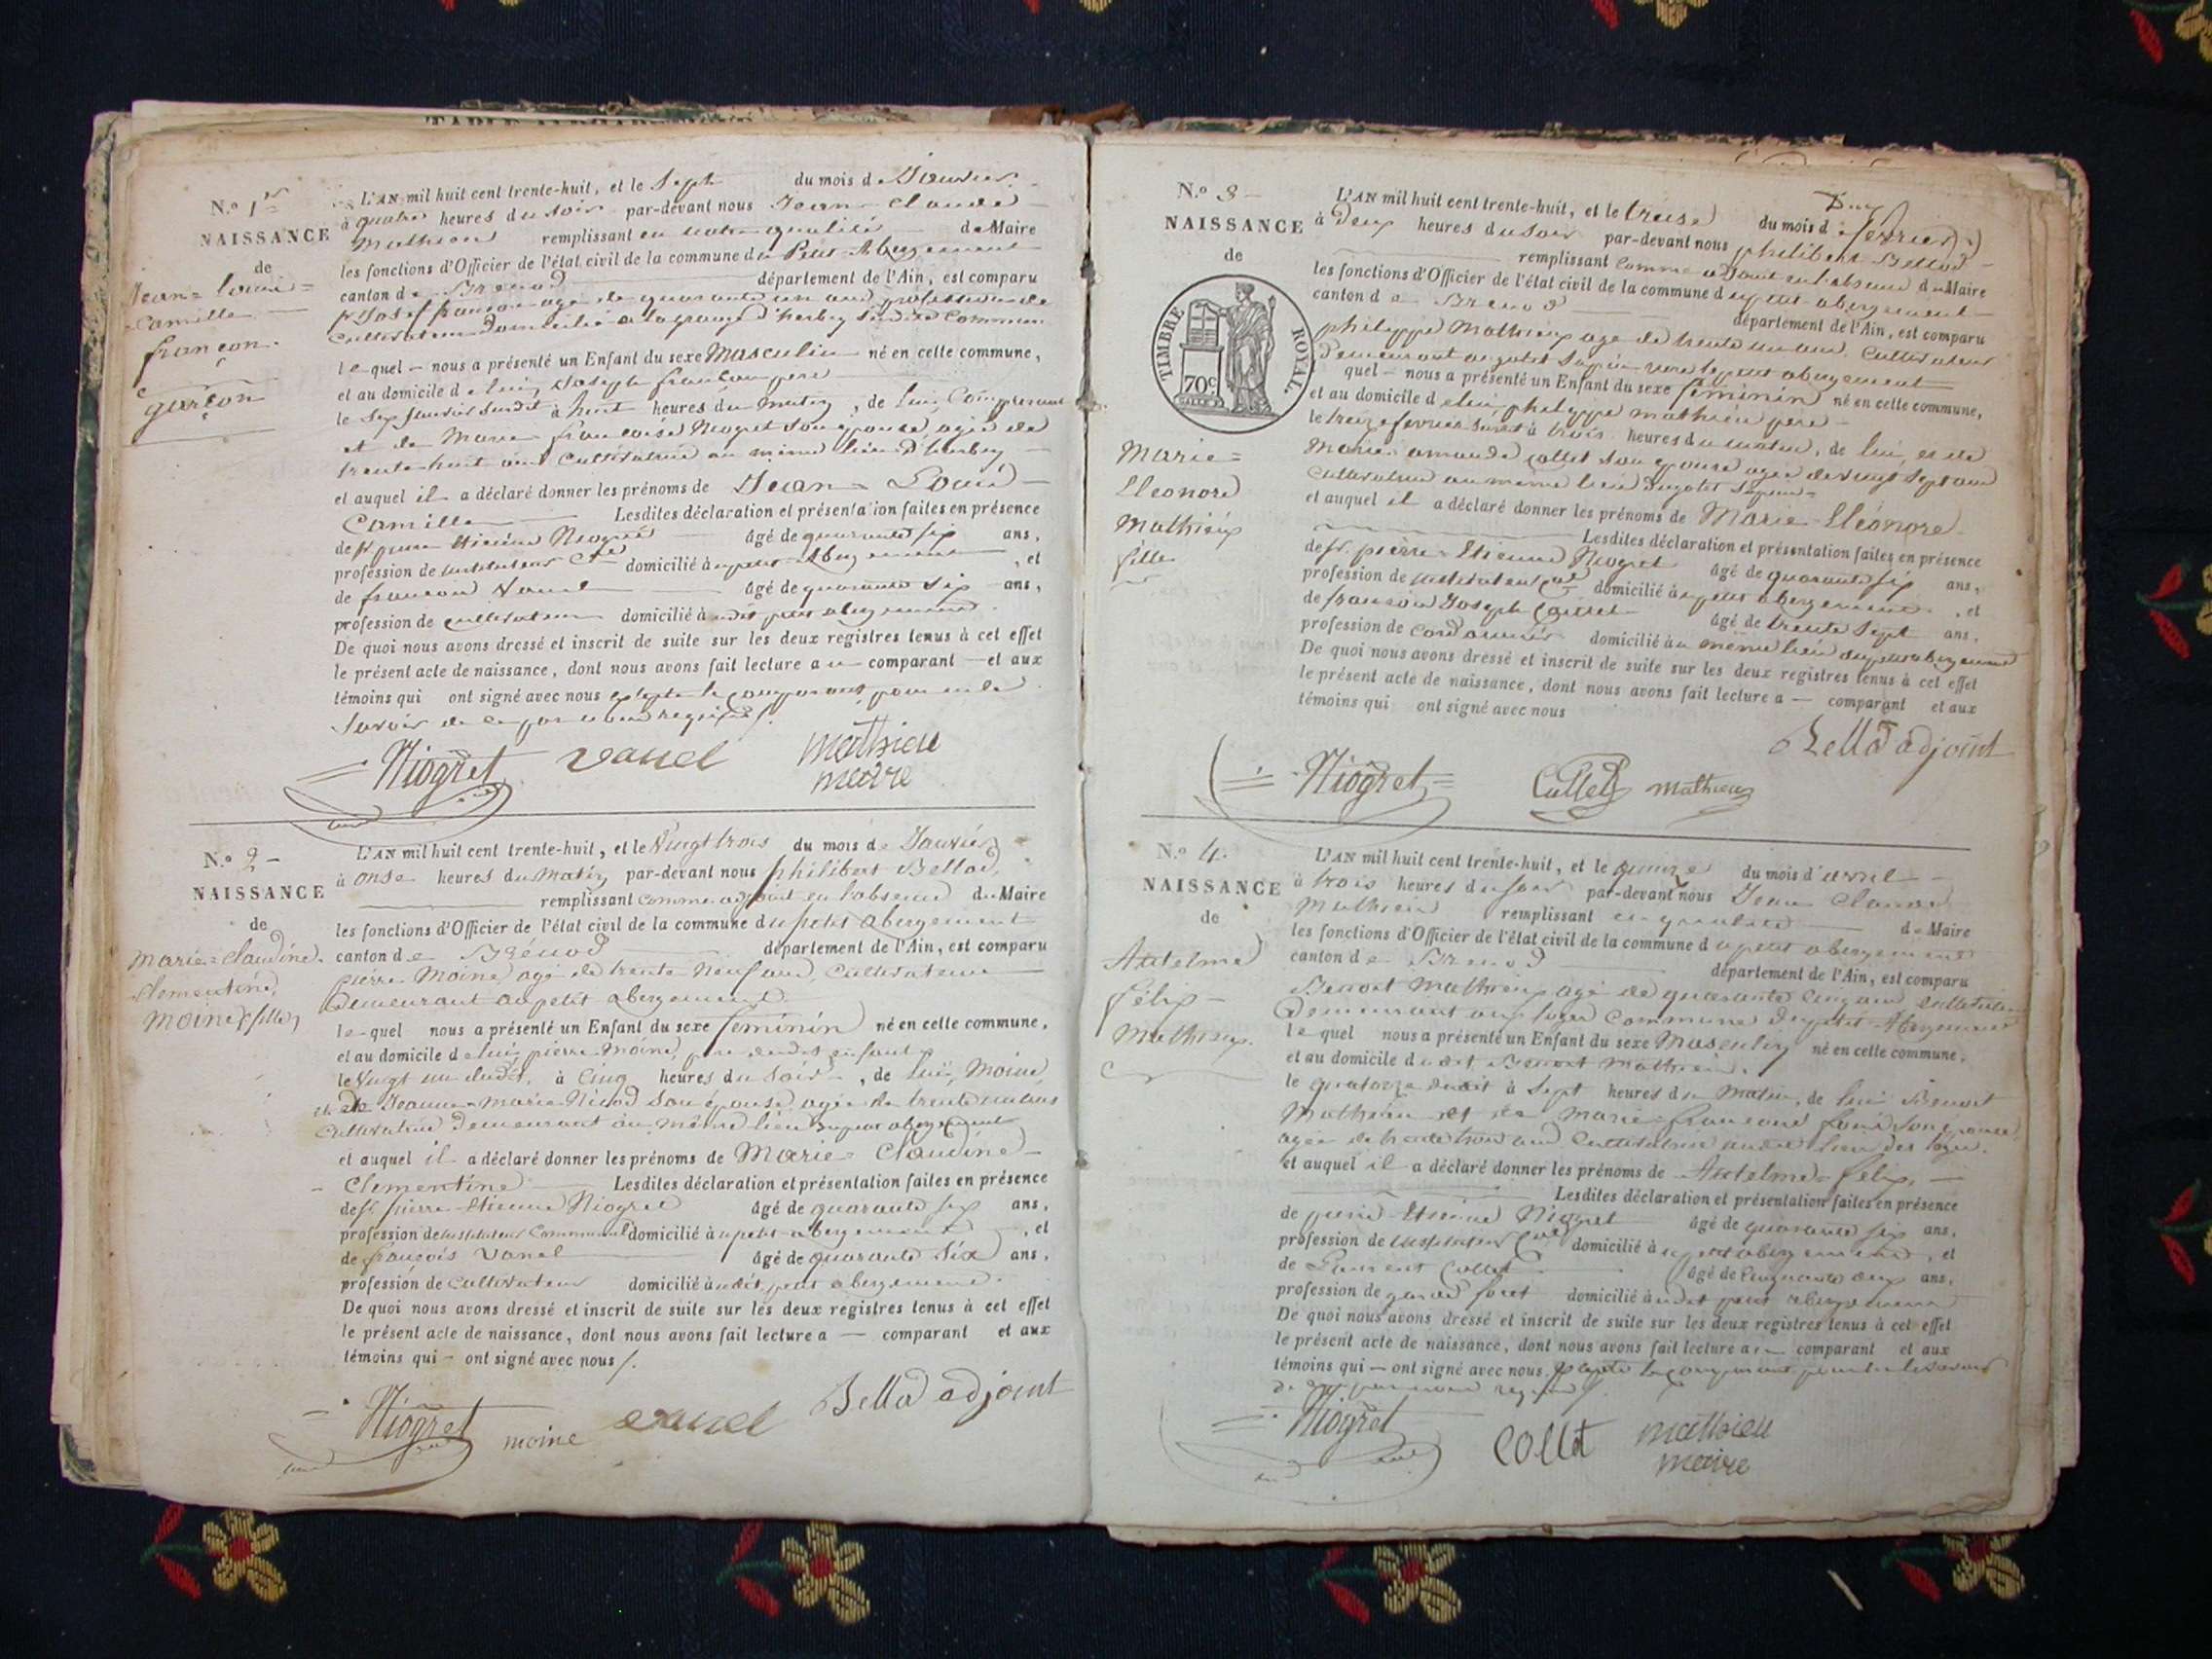 TABLE ALPHABÉTIQUE
N.º 1er
NAISSANCE
de
Jean=Louis=
Camille
françon.
garçon
L'AN mil huit cent trente-huit, et le Sept du mois de Janvier.
à quatre heures du soir par-devant nous Jean Claude
Mathieu remplissant en notre qualité de Maire
les fonctions d'Officier de l'état civil de la commune du Petit Abergement
canton de Brenod département de l'Ain, est comparu
françon agé de quarante un ans, profession de
Cultivateur Domicilié à la grange d'herbey susdite Commune
lequel nous a présenté un Enfant du sexe Masculin né en cette commune,
et au domicile de lui, Joseph françon père
le Sept Janvier susdit à huit heures du matin, de lui, Comparant
et de Marie françoise Niogret son épouse agée de
trente huit ans Cultivatrice au même lieu d'herbey
et auquel il a déclaré donner les prénoms de Jean=Louis
Camille Lesdites déclaration et présentation faites en présence
de Sr pierre Etienne Niogret âgé de quarante six ans,
profession de instituteur domicilié au petit Abergement, et
de françois Vanel âgé de quarante six ans,
profession de cultivateur domicilié audit petit abergement.
De quoi nous avons dressé et inscrit de suite sur les deux registres tenus à cet effet
le présent acte de naissance, dont nous avons fait lecture au comparant et aux
témoins qui ont signé avec nous excepté le comparant pour ne le
savoir de ce par nous requis /.
Niogret Vanel mathieu
maire
N.º 2
NAISSANCE
de
marie=Claudine.
Clementine,
moine, fille,
L'AN mil huit cent trente-huit, et le Vingt trois du mois de Janvier
à onse heures du Matin par-devant nous philibert Bellod,
remplissant comme adjoint en l'absence du Maire
les fonctions d'Officier de l'état civil de la commune du petit abergement
canton de Brénod département de l'Ain, est comparu
pierre Moine, agé de trente neuf ans, Cultivateur
Demeurant au petit abergement.
lequel nous a présenté un Enfant du sexe féminin né en cette commune,
et au domicile de lui, pierre Moine, père dudit enfant
le Vingt un dudit, à Cinq heures du Soir, de lui, Moine,
et de Jeanne=Marie Nicod son épouse, agée de trente un ans
Cultivatrice demeurant au même lieu du petit abergement
et auquel il a déclaré donner les prénoms de Marie=Claudine
Clementine Lesdites déclaration et présentation faites en présence
de Sr pierre Etienne Niogret âgé de quarante six ans,
profession de instituteur Communal domicilié au petit abergement, et
de françois Vanel âgé de quarante Six ans,
profession de Cultivateur domicilié audit petit abergement.
De quoi nous avons dressé et inscrit de suite sur les deux registres tenus à cet effet
le présent acte de naissance, dont nous avons fait lecture a comparant et aux
témoins qui ont signé avec nous /.
Niogret moine Vanel Bellod adjoint
N.º 3
NAISSANCE
de
TIMBRE ROYAL
70c
Marie=
Eleonore
Mathieux
fille
L'AN mil huit cent trente-huit, et le treise du mois de fevrier
à Deux heures du soir par-devant nous philibert Bellod
remplissant comme adjoint en l'absence du Maire
les fonctions d'Officier de l'état civil de la commune du petit abergement
canton de Brenod département de l'Ain, est comparu
philippe Mathieux agé de trente un ans, Cultivateur
Demeurant
quel nous a présenté un Enfant du sexe féminin né en cette commune,
et au domicile de lui, philippe mathieu père
le treize fevrier susdit à trois heures du matin, de lui, et de
Marie amande Collet son épouse agée de vingt sept ans
Cultivatrice au même lieu
et auquel il a déclaré donner les prénoms de Marie Eléonore
Lesdites déclaration et présentation faites en présence
de Sr. pierre Etienne Niogret âgé de quarante six ans,
profession de instituteur domicilié au petit abergement, et
de françois Joseph Collet âgé de trente Sept ans,
profession de cordonnier domicilié au même lieu du petit abergement
De quoi nous avons dressé et inscrit de suite sur les deux registres tenus à cet effet
le présent acte de naissance, dont nous avons fait lecture a comparant et aux
témoins qui ont signé avec nous
Bellod adjoint
Niogret Collet mathieu
N.º 4.
NAISSANCE
de
Antelme
félix
Mathieux.
L'AN mil huit cent trente-huit, et le quinze du mois d'avril
à trois heures du soir par-devant nous Jean Claude
Mathieu remplissant en qualité de Maire
les fonctions d'Officier de l'état civil de la commune du petit abergement
canton de Brenod département de l'Ain, est comparu
Benoit Mathieux agé de quarante cinq ans cultivateur
Demeurant aux loges Commune du petit Abergement
lequel nous a présenté un Enfant du sexe Masculin né en cette commune,
et au domicile dudit Benoit Mathieu.
le quatorze dudit à Sept heures du Matin, de lui Benoit
Mathieu et de Marie françoise son épouse
agée de trente trois ans Cultivatrice audit lieu des loges.
et auquel il a déclaré donner les prénoms de Antelme=félix,
Lesdites déclaration et présentation faites en présence
de pierre Etienne Niogret âgé de quarante six ans,
profession de instituteur domicilié au petit abergement, et
de Laurent Collet âgé de Cinquante deux ans,
profession de garde foret domicilié audit petit abergement
De quoi nous avons dressé et inscrit de suite sur les deux registres tenus à cet effet
le présent acte de naissance, dont nous avons fait lecture au comparant et aux
témoins qui ont signé avec nous, excepté le comparant pour ne le savoir
de ce par nous requis /.
Niogret Collet mathieu
maire